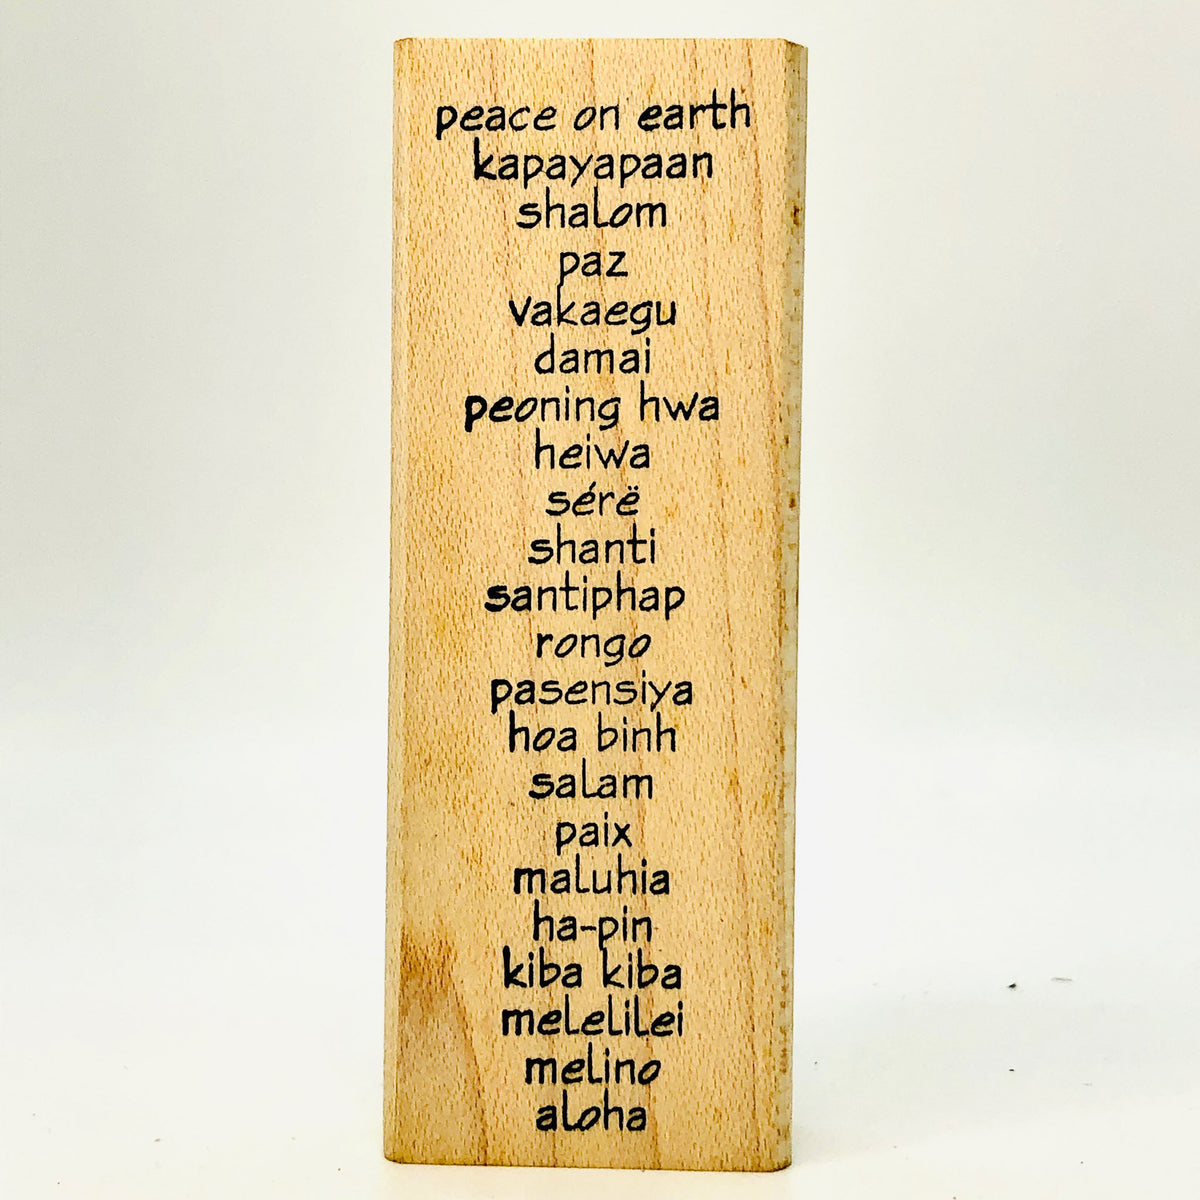 peace on earth
kapayapaan
shalom
paz
vakaegu
damai
peoning hwa
heiwa
sérë
shanti
santiphap
rongo
pasensiya
hoa binh
salam
paix
maluhia
ha-pin
kiba kiba
melelilei
melino
aloha